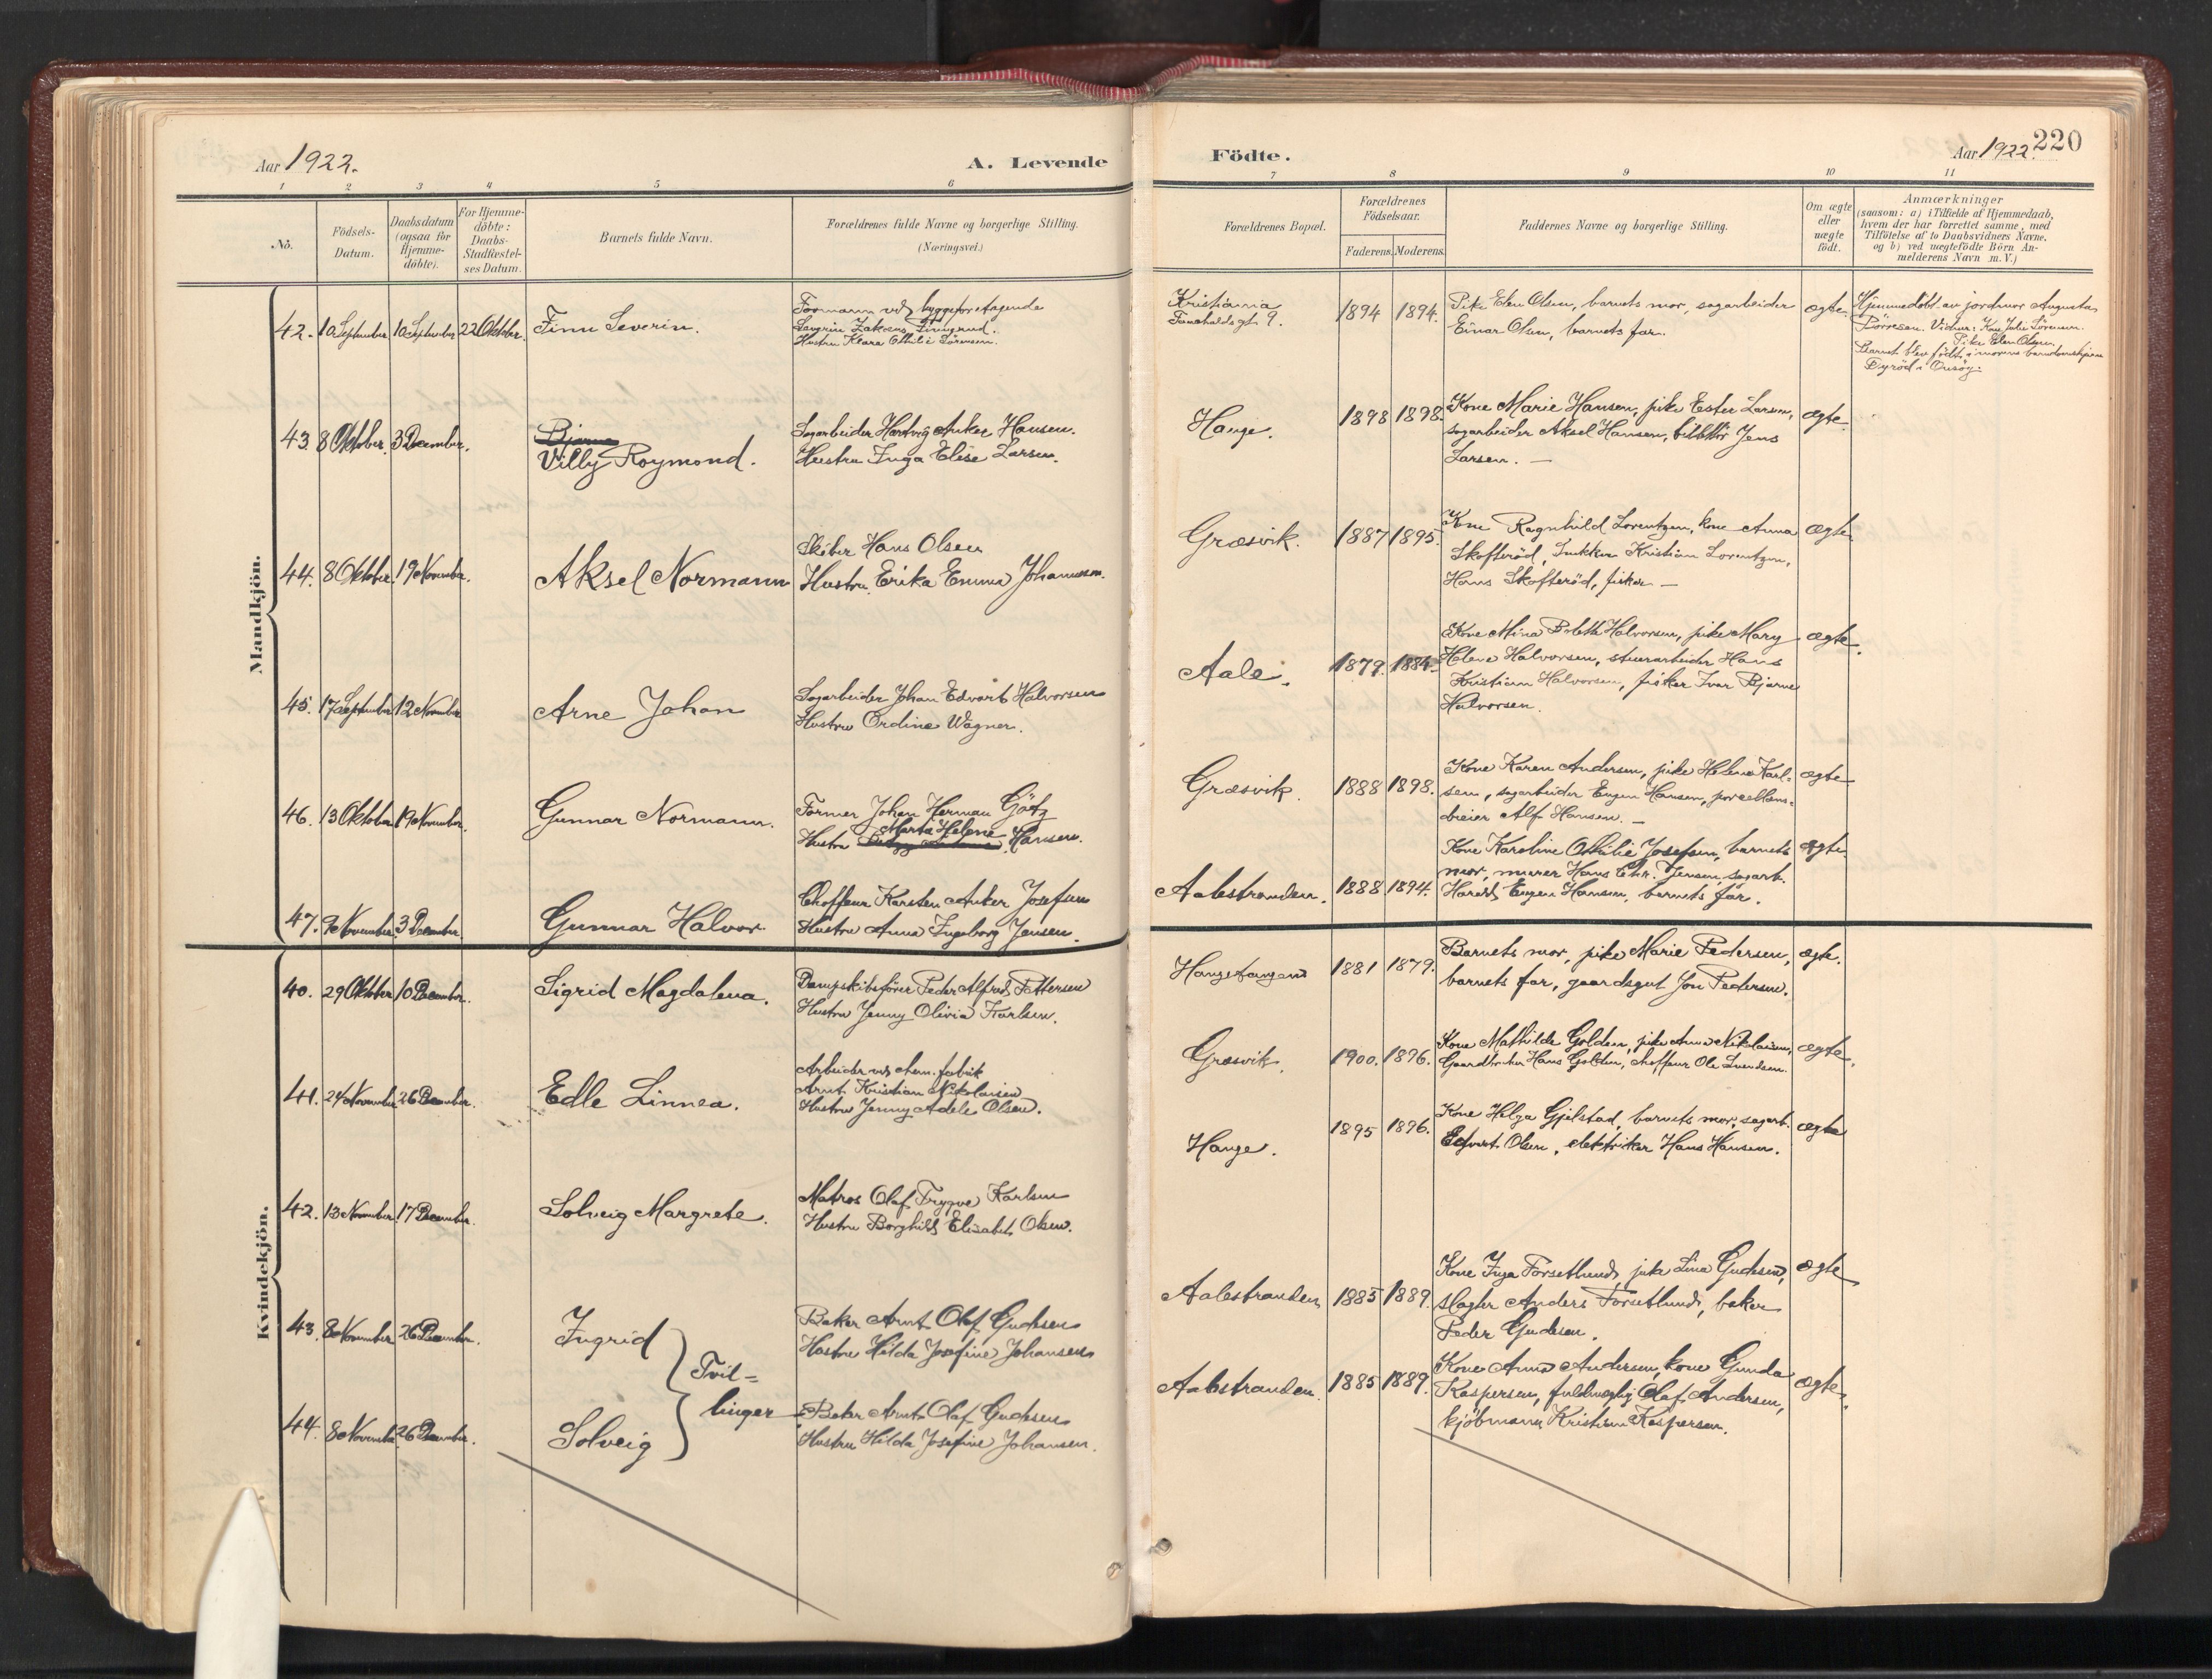 Aar 1922.
A. Levende
1 2 3 4 5 6
Nô.
Födsels-Datum.
Daabsdatum (ogsaa for Hjemme-döbte).
For Hjemme-döbte: Daabs-Stadfæstel-ses Datum.
Barnets fulde Navn.
Forældrenes fulde Navne og borgerlige Stilling.
(Næringsvei.)
Mandkjön.
42. 10 September 10 September 22 Oktober. Finn Severin.
Formann ved byggeforetagende
Hustru Klara Othilie Sörensen.
43. 8 Oktober. 3 December. Bjarne
Villy Roymond.
Sagarbeider Hartvig Anker Hansen.
Hustru Inga Elise Larsen.
44. 8 Oktober. 19 November. Aksel Normann
Skiber Hans Olsen
Hustru Erika Emma Johannesen.
45. 17 September 12 November Arne Johan
Sagarbeider Johan Edvart Halvorsen
Hustru Ordine Wagner.
46. 13 Oktober 19 November. Gunnar Normann.
Former Johan Herman Götz
Marta Helene
Hustru Hansen.
47. 9 November. 3 December Gunnar Halvor.
Choffeur Karsten Anker Josefsen
Hustru Anna Ingeborg Jensen.
Kvindekjön.
40. 29 Oktober 10 December. Sigrid Magdalena.
Dampskibsförer Peder Alfred Pettersen
Hustru Jenny Olivia Karlsen.
41. 24 November 26 December. Edle Linnea.
Arbeider ved chem. fabrik
Arnt Kristian Nikolaisen
Hustru Jenny Adele Olsen.
42. 13 November 17 December. Solveig Margrete.
Matros Olaf Trygve Karlsen
Hustru Borghild Elisabet Olsen.
43. 8 November 26 December. Ingrid
Baker Arnt Olaf Gudesen
Hustru Hilda Josefine Johansen
Tvil=
linger
44. 8 November 26 December. Solveig
Baker Arnt Olaf Gudesen
Hustru Hilda Josefine Johansen.
Födte.
Aar 1922.
220
7 8 9 10 11
Forældrenes Bopæl.
Forældrenes Födselsaar.
Faderens. Moderens.
Faddernes Navne og borgerlige Stilling.
Om ægte eller uægte födt.
Anmærkninger
(saasom: a) i Tilfælde af Hjemmedaab,
hvem der har forrettet samme, med
Tilföielse af to Daabsvidners Navne.
og b) ved uægtefödte Börn An-
melderens Navn m. V.)
Kristiania
9.
1894 1894.
Pike Elen Olsen, barnets mor, sagarbeider
Einar Olsen, barnets far.
ægte.
Hjemmedöbt av jordmor Augusta
Börresen. Vidner: Kone Julie Sörensen.
Pike Elen Olsen.
Barnet blev födt i morens barndomshjem
Dyröd i Onsöy.
Hauge.
1898 1898.
Kone Marie Hansen, pike Ester Larsen,
sagarbeider Aksel Hansen, Jens
Larsen. —
ægte.
Græsvik.
1887 1895.
Kone Ragnhild Lorentzen, kone Anna
Skofteröd, Snekker Kristian Lorentzen,
Hans Skofteröd, fisker. —
ægte.
Aale.
1879. 1884.
Kone Mina Bolette Halvorsen, pike Mary
Helene Halvorsen, stuerarbeider Hans
Kristian Halvorsen, fisker Ivar Bjarne
Halvorsen.
ægte.
Græsvik.
1888 1898.
Kone Karen Andersen, pike Helene Karl=
sen, sagarbeider Eugen Hansen, porcellens=
dreier Alf Hansen. —
ægte
Aalestranden.
1888 1894.
Kone Karoline Othilie Josefsen, barnets
mor, murer Hans Chr. Jensen, sagarb.
Harald Eugen Hansen, barnets far.
ægte.
Haugetangen
1881 1879.
Barnets mor, pike Marie Pedersen,
barnets far, gaardsgut Jon Pedersen.
ægte.
Græsvik.
1900. 1896.
Kone Mathilde Golden, pike Anna Nikolaisen,
Gaardbruker Hans Golden, choffeur Ole Svendsen.
ægte.
Hauge.
1895 1896.
Kone Helga Gjelstad, barnets mor, sagarb.
Edvart Olsen, elektriker Hans Hansen.
ægte
Aalestranden
1885 1889.
Kone Inga Torsetlund, pike Lina Gudesen,
slagter Anders Torsetlund, baker
Peder Gudesen.
ægte
Aalestranden
1885 1889.
Kone Anna Andersen, kone Gunda
Kaspersen, fuldmægtig Olaf Andersen,
kjöbmann Kristian Kaspersen.
ægte.